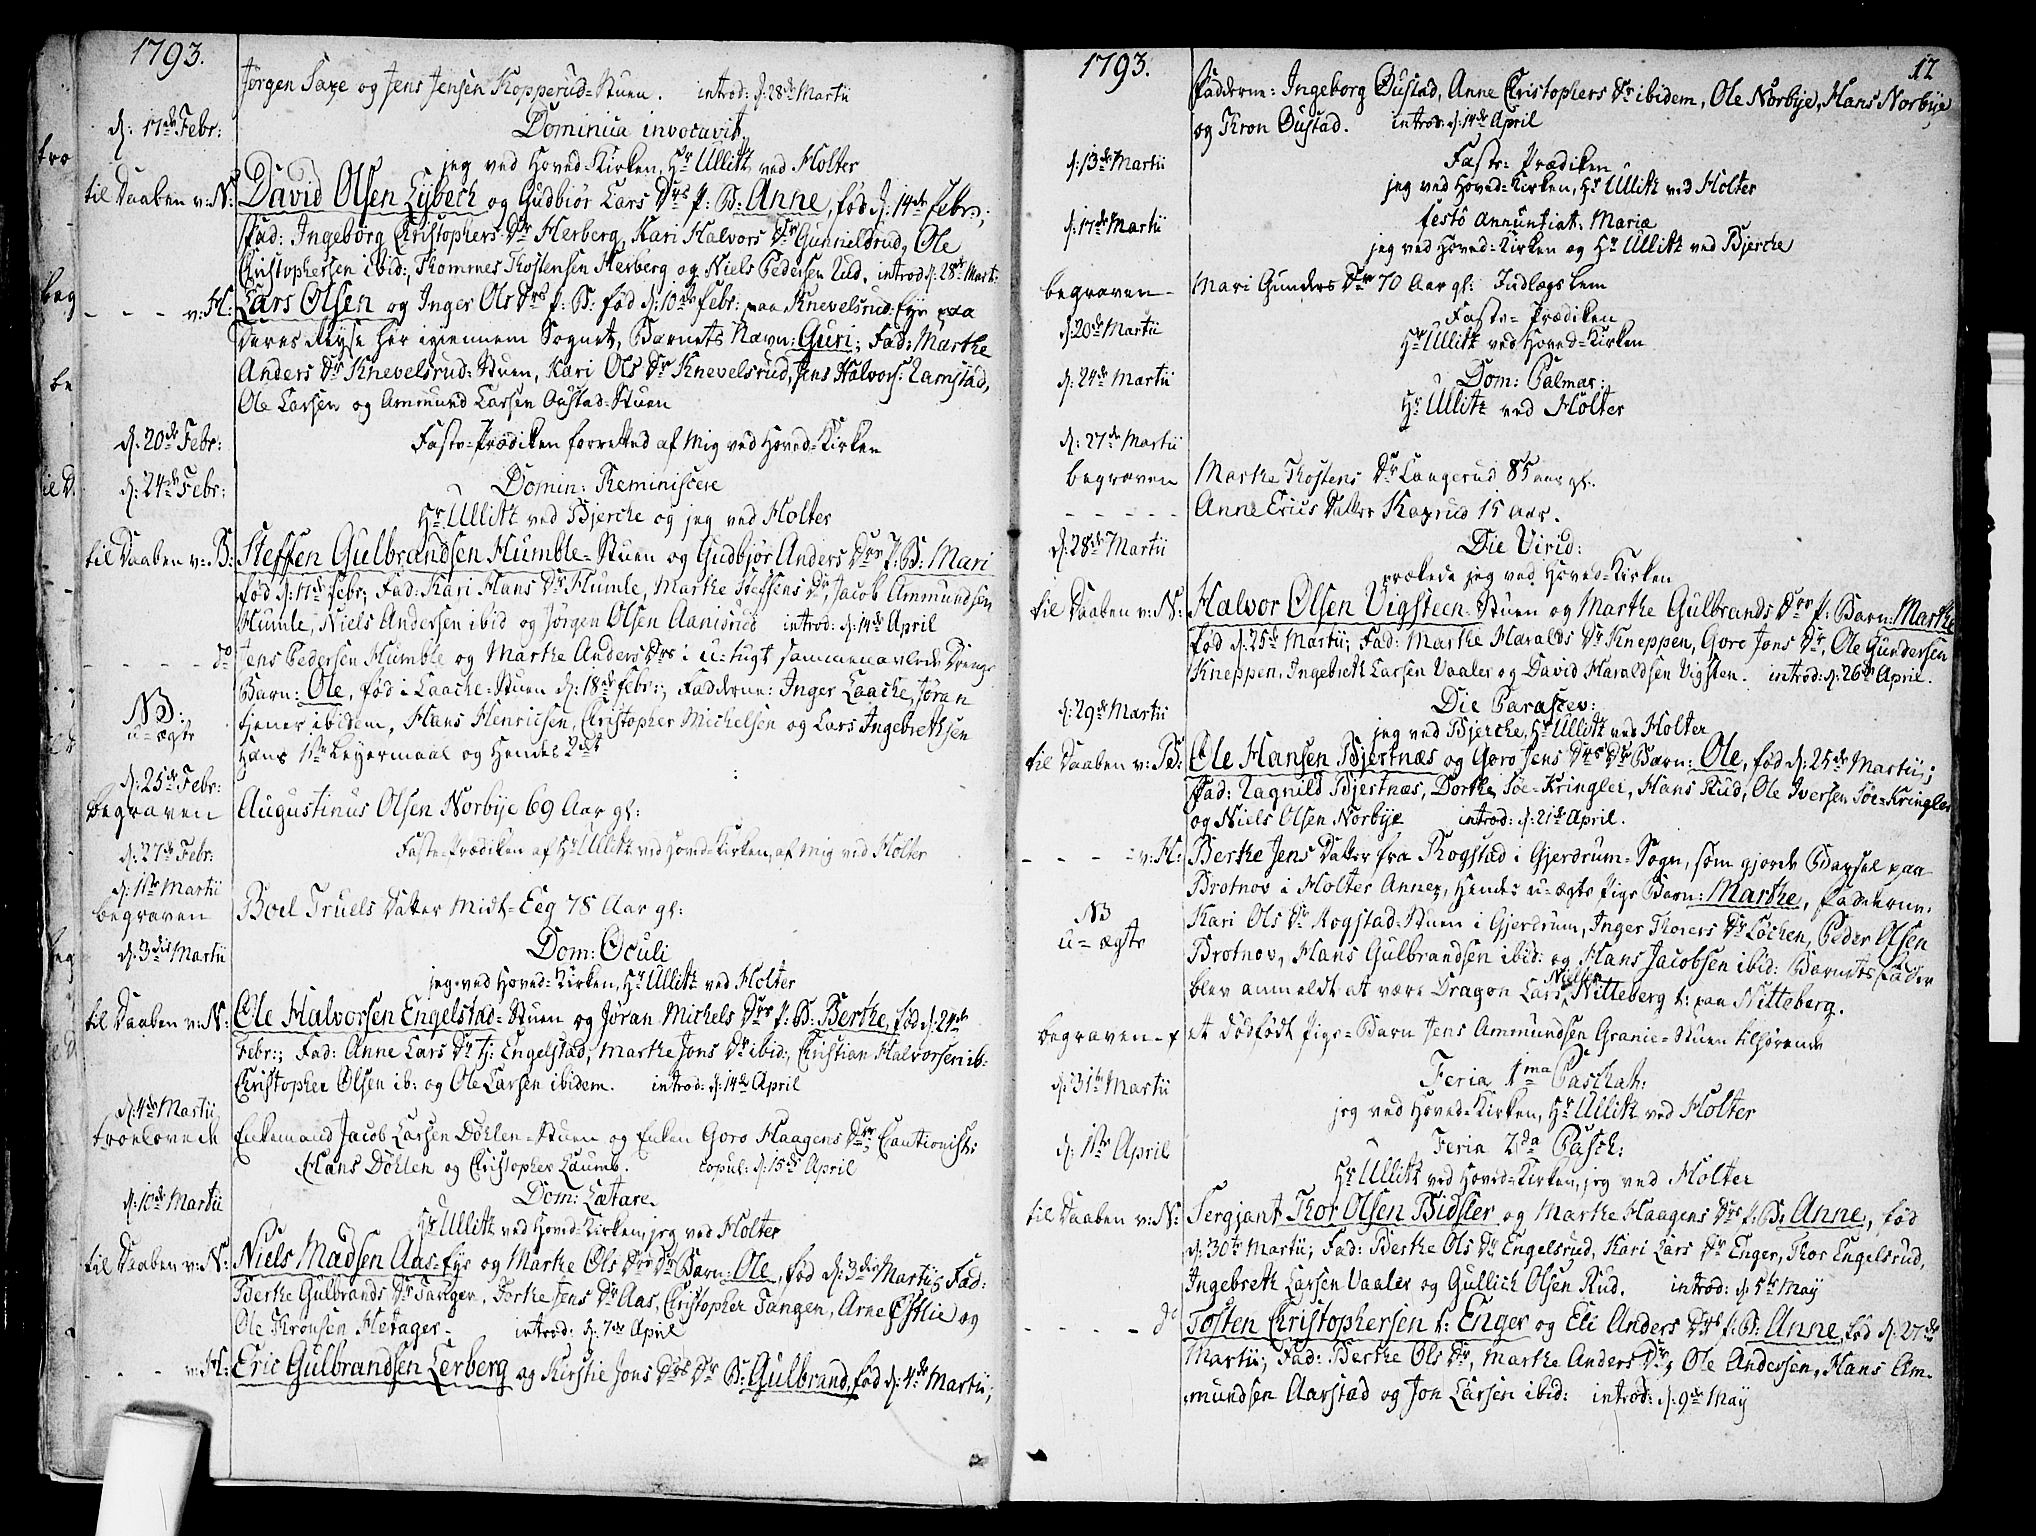 1793.
Jørgen Saxe og Jens Jensen Kopperud-Stuen. introd: d: 28de Martii
d: 17de Febr: Dominica invocavit
jeg ved Hoved-Kirken, Hr Ullitz ved Holter
til Daaben v: N: David Olsen Lybeck og Gudbiør Lars Drs P: B: Anne, fød d: 14de Febr:;
Fad: Ingeborg Christophers Dr Herberg, Kari Halvors Dr Gunnieldrud, Ole
Christophersen ibid:, Thommes Thostensen Herberg og Niels Pedersen Rud. introd d: 28de Mart:
- - - v: H: Lars Olsen og Inger Ols Drs P: B: fød d: 10de Febr: paa Knevelsrud-Eye paa
deres Reyse her igiennem Sognet, Barnets Navn: Guri; Fad: Marthe
Anders Dr Knevelsrud-Stuen, Kari Ols Dr Knevelsrud, Jens Halvors: Ramstad,
Ole Larsen og Ammund Larsen Oustad-Stuen
d: 20de Febr: Faste-Prædiken forrettet af Mig ved Hoved-Kirken
d: 24de Febr: Domin: Reminiscere
Hr Ullitz ved Bjerche og jeg ved Holter
til Daaben v: B: Steffen Gulbrandsen Humble-Stuen og Gudbjør Anders Drs P: B: Mari
fød d: 17de Febr; Fad: Kari Hans Dr Humle, Marthe Steffens Dr, Jacob Ammundsen
Humle, Niels Andersen ibid og Jørgen Olsen Aanisrud introd: d: 14de April
- - - - - do Jens Pedersen Humble og Marthe Anders Drs i u-tugt sammenavlede Drenge
Barn: Ole, fød i Laache-Stuen d: 18de Febr:; Fadderne: Inger Laache, Jøran
NB: u-ægte tjener ibidem, Hans Henricsen, Christopher Michelsen og Lars Ingebrethsen
Hans 1ste Leyermaal og Hendes 2det
d: 25de Febr:
begraven Augustinus Olsen Norbye 69 Aar gl:
d: 27de Febr: Faste-Prædiken af Hr Ullitz ved Hoved-Kirken, af mig ved Holter
d: 1ste Martii
begraven Boel Truels Datter Midt-Eeg 78 Aar gl:
d: 3die Martii Dom: Oculi
jeg ved Hoved-Kirken, Hr Ullitz ved Holter
til Daaben v: N: Ole Halvorsen Engelstad-Stuen og Jøran Michels Drs P: B: Berthe, fød d: 24de
Febr:; Fad: Anne Lars Dr tj: Engelstad, Marthe Jons Dr ibid:, Christian Halvorsen ib:
Christopher Olsen ib: og Ole Larsen ibidem. introd: d: 14de April
d: 4de Martii
troelovede Enkemand Jacob Larsen Døhlen-Stuen og Enken Goro Haagens Dr; Cautionist:
Hans Døhlen og Christopher Laumb. copul: d: 15de April
d: 10de Martii Dom: Lætare
Hr Ullitz ved Hoved-Kirken, jeg ved Holter
til Daaben v: N: Niels Madsen Aas-Eye og Marthe Ols Drs Dr Barn: Ole, fød d: 3die Martii; Fad:
Berthe Gulbrands Dr Tangen, Dorthe Jens Dr Aas, Christopher Tangen, Arne Østlie og
Ole Thronsen Hexager introd: d: 7de April
- - - v: H: Eric Gulbrandsen Lerberg og Kirstie Jons Drs Dr B: Gulbrand, fød d: 4de Martii;
1793. 12
Fadderne: Ingeborg Oustad, Anne Christophers Dr ibidem, Ole Norbye, Hans Norbye
og Thron Oustad. introd: d: 14de April
d: 13de Martii Faste-Prædiken
jeg ved Hoved-Kirken, Hr Ullitz ved Holter
d: 17de Martii festo annuntiat: Mariæ
jeg ved Hoved-Kirken og Hr Ullitz ved Bjerche
begraven - Mari Gunders Dr 70 Aar gl: Indlægs lem
d: 20de Martii Faste-Prædiken
Hr Ullitz ved Hoved-Kirken
d: 24de Martii Dom: Palmar:
Hr Ullitz ved Holter
d: 27de Martii
begraven Marthe Thostens Dr Laugerud 85 aar gl:
- - - - - Anne Erics Datter Kaxrud 15 aar.
d: 28de Martii Die Virid:
prækede jeg ved Hoved-Kirken
til Daaben v: N: Halvor Olsen Vigsteen-Stuen og Marthe Gulbrands Drs P: Barn: Marthe
fød d: 25de Martii; Fad: Marthe Haralds Dr Kneppen, Goro Jons Dr, Ole Gundersen
Kneppen, Ingebreth Larsen Vaaler og David Haraldsen Vigsten. introd: d: 26de April.
d: 29de Martii Die Parascev:
jeg ved Bjerche, Hr Ullitz ved Holter
til Daaben v: B: Ole Hansen Bjertnæs og Goro Jens Drs Dr Barn: Ole, fød d: 25de Martii;
Fad: Ragnild Bjertnæs, Dorthe Søe-Kringler, Hans Rud, Ole Iversen Søe-Kringler
og Niels Olsen Norbye introd: d: 21de April.
- - - - v: H: Berthe Jens Datter fra Rogstad i Gjerdrum-Sogn, som gjorde Barsel paa
Brotnov i Holter Annex, Hendes u-ægte Pige Barn: Marthe, Fadderne:
NB u-ægte Kari Ols Dr Rogstad-Stuen i Gjerdrum, Inger Thorers Dr Løchen, Peder Olsen
Brotnov, Hans Gulbrandsen ibid: og Hans Jacobsen ibid: Barnets Fader
blev anmeldt at være Dragon Lars Nielsen Nitteberg t: paa Nitteberg.
begraven - et dødfødt Pige-Barn Jens Ammundsen Granie-Stuen tilhørende
d: 31te Martii Feria 1ma Paschat:
jeg ved Hoved-Kirken, Hr Ullitz ved Holter
d: 1ste April Feria 2da Pasch:
Hr Ullitz ved Hoved-Kirken, jeg ved Holter
til Daaben v: N: Sergjant Thor Olsen Bidsler og Marthe Haagens Drs P: B: Anne, fød
d: 30te Martii; Fad: Berthe Ols Dr Engelsrud, Kari Lars Dr Enger, Thor Engelsrud,
Ingebreth Larsen Vaaler og Gullich Olsen Rud. introd: d: 5te May
- - - - do Tosten Christophersen t: Enger og Eli Anders Drs P: B: Anne, fød d: 27de
Martii; Fad: Berthe Ols Dr, Marthe Anders Dr, Ole Andersen, Hans Am-
mundsen Aarstad og Jon Larsen ibid: introd: d: 9de May